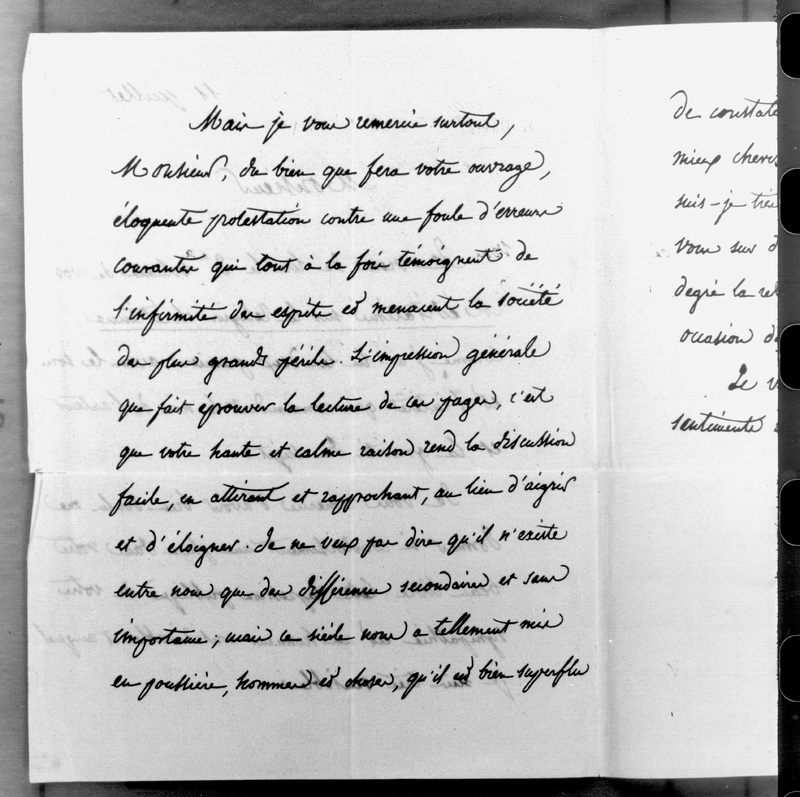 Mais je vous remercie surtout,
Monsieur, du bien que fera votre ouvrage,
éloquente protestation contre une foule d'erreurs
courantes qui tout à la fois témoignent de
l'infirmité des esprits et menacent la société
des plus grands périls. L'impression générale
que fait éprouver la lecture de ces pages, c'est
que votre haute et calme raison rend la discussion
facile, en attirant et rapprochant, au lieu d'aigrir
et d'éloigner. Je ne veux pas dire qu'il n'existe
entre nous que des différences secondaires et sans
importance ; mais ce siècle nous a tellement mis
en poussière, hommes et choses, qu'il est bien superflu
de constate
mieux cherch
suis-je très
vous sur d
degré la re
occasion d
Je v
sentiments
11 juillet
Monsieur